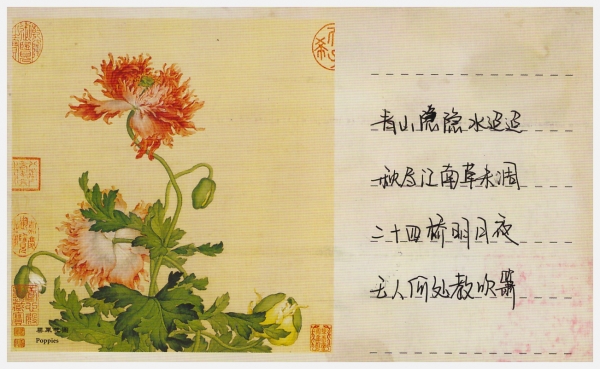 青山隐隐水迢迢
秋尽江南草未凋
二十四桥明月夜
玉人何处教吹箫
Poppies